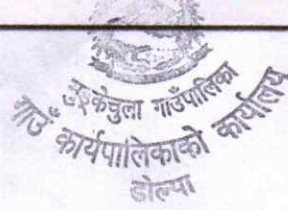 मुड्केचुला गाउँपालिका
गाउँ कार्यपालिकाको कार्यालय
डोल्पा